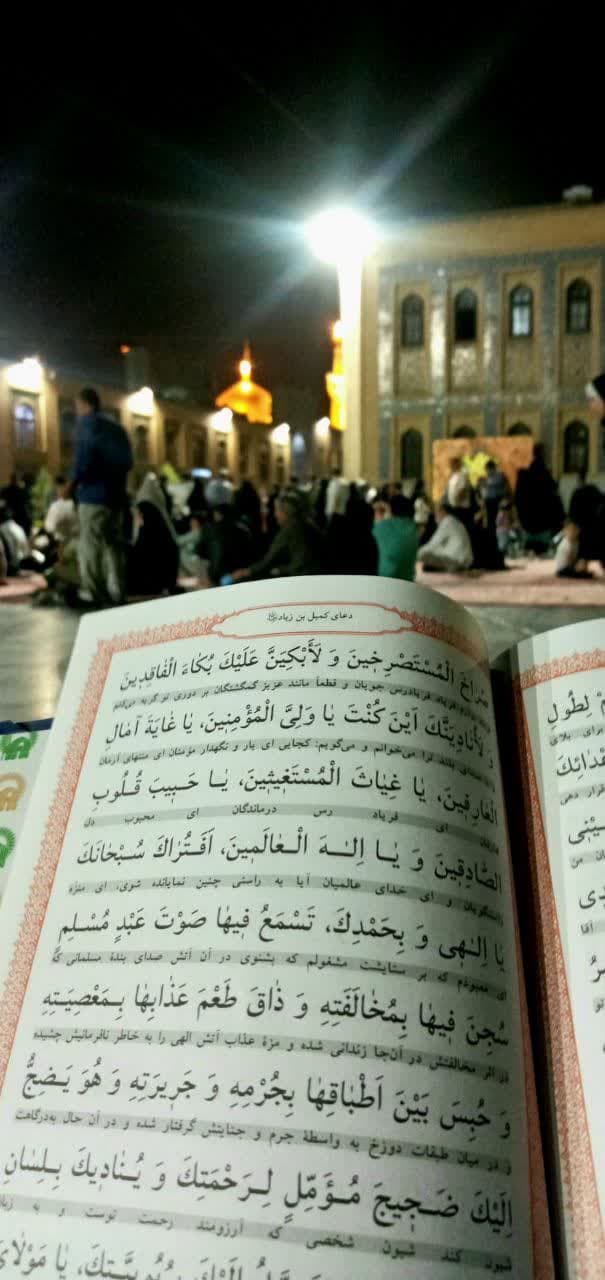 دعای کمیل بن زیاد
صُرَاخَ الْمُسْتَصْرِخِينَ وَ لَأَبْكِيَنَّ عَلَيْكَ بُكَاءَ الْفَاقِدِينَ
فریاد فریادرس جویان و قطعاً مانند عزیز گمگشتگان بر دوری تو گریه می‌کنم
وَ لَأُنَادِيَنَّكَ اَيْنَ كُنْتَ يَا وَلِىَّ الْمُؤْمِنِينَ، يَا غَايَةَ آمَالِ
ترا می‌خوانم و می‌گویم: کجایی ای یار و نگهدار مؤمنان ای منتهای آرمان
الْعَارِفِينَ، يَا غِيَاثَ الْمُسْتَغِيثِينَ، يَا حَبِيبَ قُلُوبِ
عارفان ای فریاد رس درماندگان ای محبوب دل
الصَّادِقِينَ وَ يَا اِلٰهَ الْعَالَمِينَ، اَفَتُرَاكَ سُبْحَانَكَ
راستگویان و ای خدای عالمیان آیا به راستی چنین نمایانده شوی، ای منزه
يَا اِلٰهِى وَ بِحَمْدِكَ، تَسْمَعُ فِيهَا صَوْتَ عَبْدٍ مُسْلِمٍ
ای معبودم که بر ستایشت مشغولم که بشنوی در آن آتش صدای بندهٔ مسلمانی که
سُجِنَ فِيهَا بِمُخَالَفَتِهِ وَ ذَاقَ طَعْمَ عَذَابِهَا بِمَعْصِيَتِهِ
در اثر مخالفتش در آن‌جا زندانی شده و مزهٔ عذاب آتش الهی را به خاطر نافرمانیش چشیده
وَ حُبِسَ بَيْنَ اَطْبَاقِهَا بِجُرْمِهِ وَ جَرِيرَتِهِ وَ هُوَ يَضِجُّ
و در میان طبقات دوزخ به واسطهٔ جرم و جنایتش گرفتار شده و در آن حال به‌درگاهت
اِلَيْكَ ضَجِيجَ مُؤَمِّلٍ لِرَحْمَتِكَ وَ يُنَادِيكَ بِلِسَانِ
شیون کند شیون شخصی که آرزومند رحمت توست و به
اِلَيْكَ بِرُبُوبِيَّتِكَ، يَا مَوْلَاىَ
لِطُولِ
برای